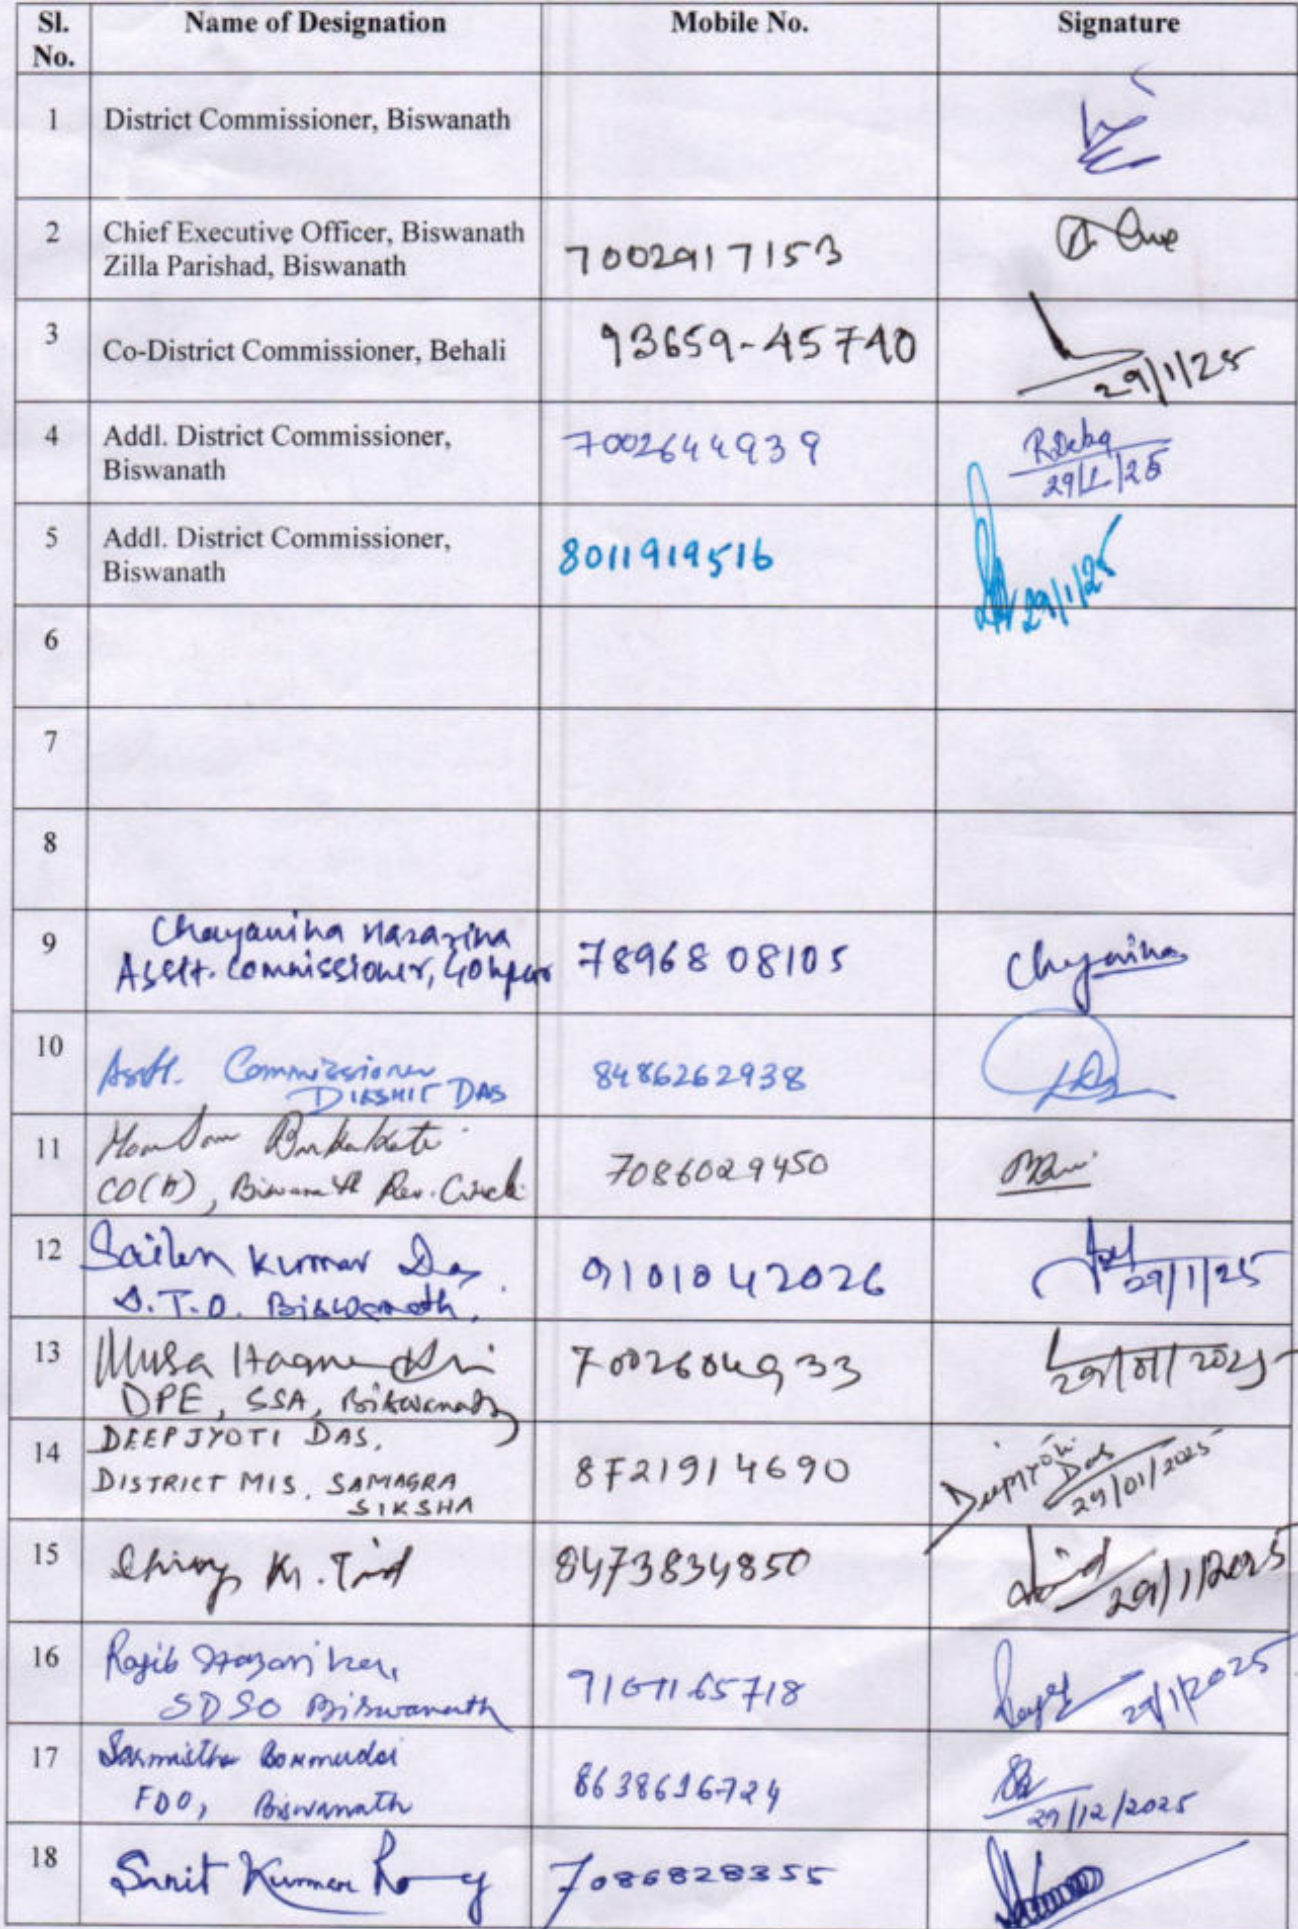 Sl. No. Name of Designation Mobile No. Signature
1 District Commissioner, Biswanath
2 Chief Executive Officer, Biswanath
Zilla Parishad, Biswanath 7002917153
3 Co-District Commissioner, Behali 93659-45740 29/1/25
4 Addl. District Commissioner,
Biswanath 7002644939 R Deka
29/1/25
5 Addl. District Commissioner,
Biswanath 8011919516 29/1/25
6
7
8
9 Chayanika Hazarika
Asstt. Commissioner, Gohpur 78968 08105 Chayanika
10 Asstt. Commissioner
DIKSHIT DAS 8486262938
11 Borkakati
CO(A), Biswanath Rev. Circle 7086029450
12 Sailen Kumar Das
D.T.O. Biswanath, 9101042026 29/1/25
13 Musa Haque
DPE, SSA, Biswanath 7002604933 29/01/2025
14 DEEPJYOTI DAS,
DISTRICT MIS, SAMAGRA
SIKSHA 8721914690 Deepjyoti
Das
29/01/2025
15 Kr. 8473834850 29/1/2025
16 Rajib Hazarika,
SDSO Biswanath 29/1/2025
17 Sarmistha Bormudoi
FDO, Biswanath 8638616724 29/12/2025
18 Kumar Roy 7086828355